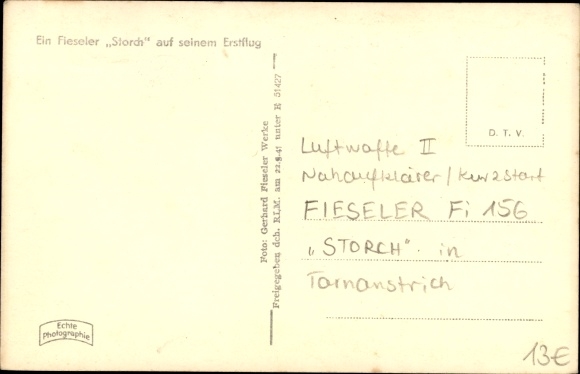 Ein Fieseler „Storch" auf seinem Erstflug
Foto: Gerhard Fieseler Werke
Freigegeben dch. RLM. am 22.9.41 unter E 51427
D. T. V.
Luftwaffe II
Nahaufklärer/Kurzstart
FIESELER Fi 156
„STORCH" in
Tarnanstrich
Echte
Photographie
13€